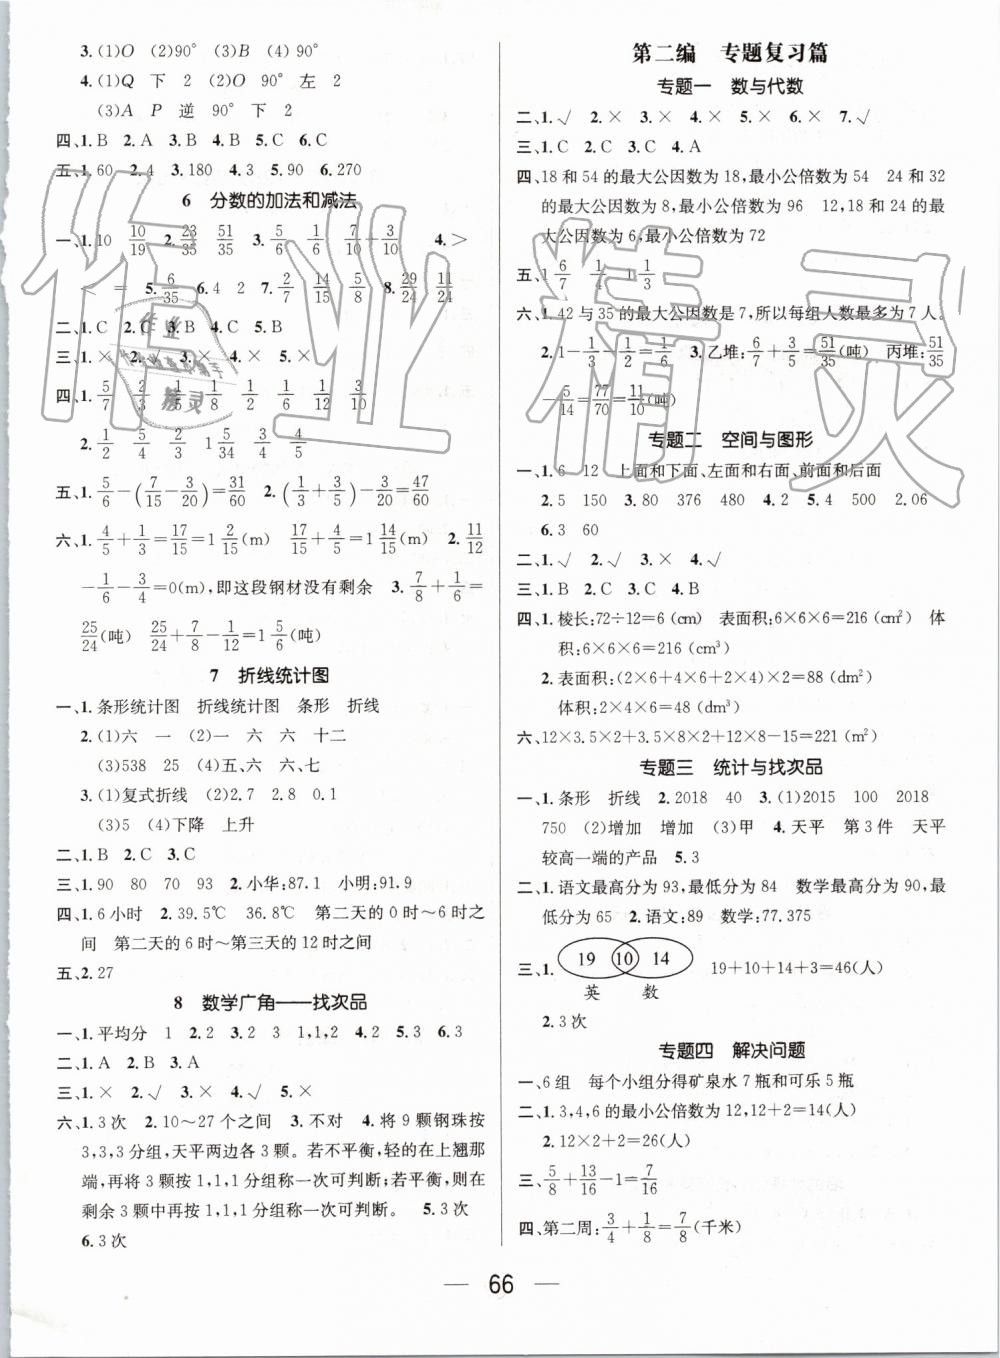 3.(1)O (2)90° (3)B (4) 90°
4.(1)Q 下 2 (2)O 90° 左 2
(3)A P 逆 90° 下 2
四、1. B 2. A 3. B 4. B 5. C 6. C
五、1. 60 2. 4 3. 180 4. 3 5. 90 6. 270
6 分数的加法和减法
一、1. 10 10/19 2. 23/35 51/35 3. 5/6 1/6 7/10 + 3/10 4. >
< = 5. 6/35 6. 4 2 7. 2/7 14/15 5/8 8. 29/24 11/24
二、1. C 2. C 3. C 4. C 5. B
三、1. × 2. √ 3. × 4. × 5. ×
四、1. 5/7 2/3 1/5 1/8 2/5 1/6 1/3
2. 1/2 5/4 2/5 1 5/34 3/4 4/5
五、1. 5/6 − (7/15 − 3/20) = 31/60 2. (1/3 + 3/5) − 3/20 = 47/60
六、1. 4/5 + 1/3 = 17/15 = 1 2/15 (m) 17/15 + 4/5 = 1 14/15 (m) 2. 11/12
− 1/6 − 3/4 = 0(m),即这段钢材没有剩余 3. 7/8 + 1/6 =
25/24 (吨) 25/24 + 7/8 − 1/12 = 1 5/6 (吨)
7 折线统计图
一、1. 条形统计图 折线统计图 条形 折线
2. (1)六 一 (2)一 六 六 十二
(3)538 25 (4)五、六 六、七
3. (1)复式折线 (2)2.7 2.8 0.1
(3)5 (4)下降 上升
二、1. B 2. C 3. C
三、1. 90 80 70 93 2. 小华:87.1 小明:91.9
四、1. 6 小时 2. 39.5℃ 36.8℃ 第二天的 0 时～6 时之
间 第二天的 6 时～第三天的 12 时之间
五、2. 27
8 数学广角——找次品
一、1. 平均分 1 2. 2 3. 2 3 1,1,2 4. 2 5. 3 6. 3
二、1. A 2. B 3. A
三、1. × 2. √ 3. × 4. √ 5. ×
六、1. 3 次 2. 10～27 个之间 3. 不对 4. 将 9 颗钢珠按
3,3,3 分组,天平两边各 3 颗。若不平衡,轻的在上翘那
端,再将 3 颗按 1,1,1 分组称一次可判断;若平衡,则在
剩余 3 颗中再按 1,1,1 分组称一次可判断。 5. 3 次
6. 3 次
第二编 专题复习篇
专题一 数与代数
二、1. √ 2. × 3. × 4. × 5. × 6. × 7. √
三、1. C 2. C 3. C 4. A
四、18 和 54 的最大公因数为 18,最小公倍数为 54 24 和 32
的最大公因数为 8,最小公倍数为 96 12,18 和 24 的最
大公因数为 6,最小公倍数为 72
五、1 6/7 1/4 1 1/3
六、1. 42 与 35 的最大公因数是 7,所以每组人数最多为 7 人。
2. 1 − 1/3 − 1/2 = 1/6 3. 乙堆: 6/7 + 3/5 = 51/35 (吨) 丙堆: 51/35
− 5/14 = 77/70 = 11/10 (吨)
专题二 空间与图形
一、1. 6 12 上面和下面、左面和右面、前面和后面
2. 5 150 3. 80 376 480 4. 2 5. 4 500 2.06
6. 3 60
二、1. √ 2. √ 3. × 4. √
三、1. B 2. C 3. C 4. B
四、1. 棱长:72÷12=6 (cm) 表面积:6×6×6=216 (cm²) 体
积:6×6×6=216 (cm³)
2. 表面积:(2×6+4×6+2×4)×2=88 (dm²)
体积:2×4×6=48 (dm³)
六、12×3.5×2+3.5×8×2+12×8−15=221 (m²)
专题三 统计与找次品
一、1. 条形 折线 2. 2018 40 3. (1)2015 100 2018
750 (2)增加 增加 (3)甲 4. 天平 第 3 件 天平
较高一端的产品 5. 3
二、1. 语文最高分为 93,最低分为 84 数学最高分为 90,最
低分为 65 2. 语文:89 数学:77.375
三、1. 19 10 14 19+10+14+3=46(人)
英 数
2. 3 次
专题四 解决问题
一、6 组 每个小组分得矿泉水 7 瓶和可乐 5 瓶
二、1. 3,4,6 的最小公倍数为 12,12+2=14(人)
2. 12×2+2=26(人)
三、5/8 + 13/16 − 1 = 7/16
四、第二周: 3/4 + 1/8 = 7/8 (千米)
— 66 —
作业精灵